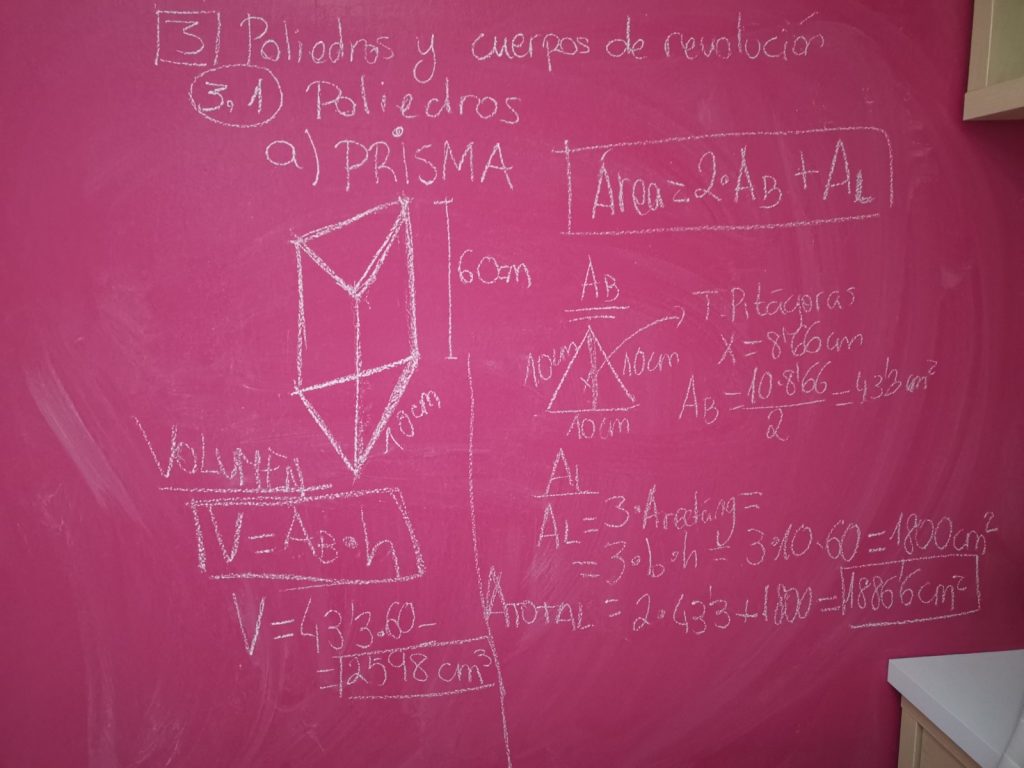 3 Poliedros y cuerpos de revolución
3.1 Poliedros
a) PRISMA
Área = 2·AB + AL
60cm
10cm
AB
10cm
10cm
x
10cm
T. Pitágoras
X = 8'66cm
AB = 10·8'66 / 2 = 43'3 cm²
VOLUMEN
V = AB·h
V = 43'3·60 =
= 2598 cm³
AL
AL = 3·Arectáng =
= 3·b·h = 3·10·60 = 1800cm²
ATOTAL = 2·43'3 + 1800 = 1886'6cm²